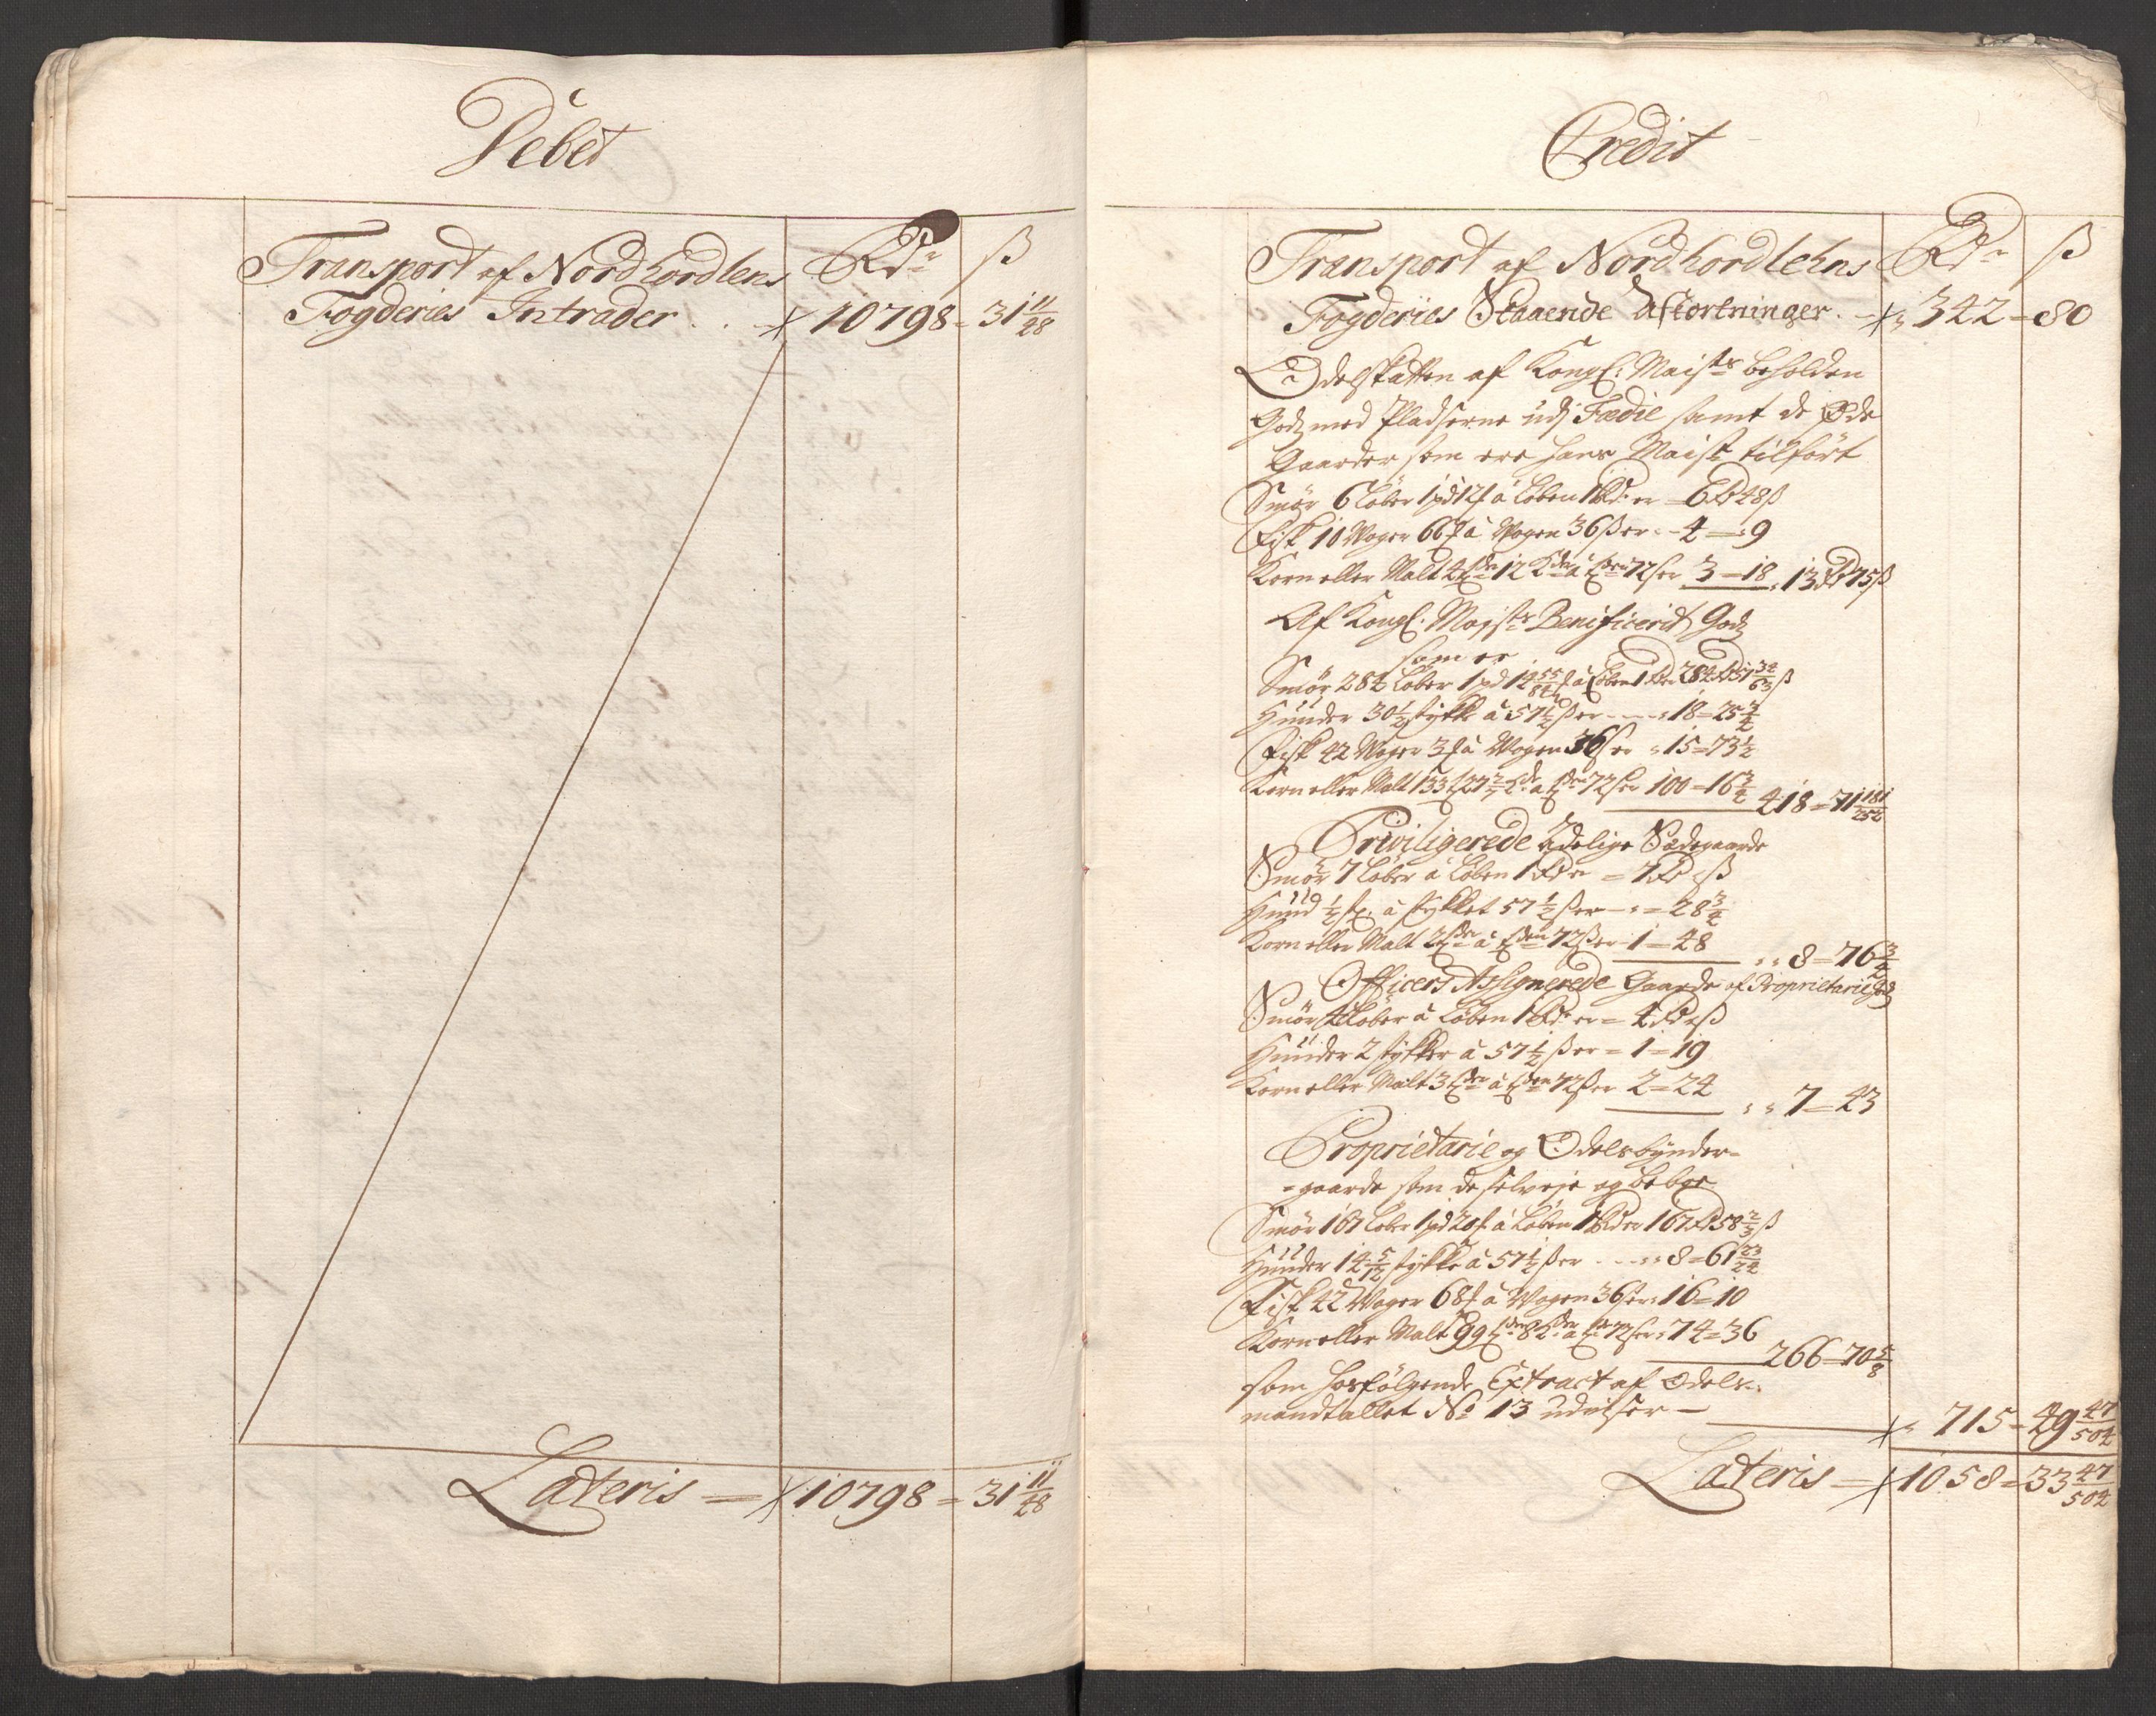 Debet
Transport af Nordhordlens Rdr ß
Fogderies Intrader . . 10798 = 31 11/48
Lateris = 10798 = 31 11/48
Credit
Transport af Nordhordlehns Rdr ß
Fogderies Staaende Afkortninger . 342 = 80
Odelskatten af Kongl: Maists beholden
Godz med Pladserne udj Fædie samt de Øde
Gaarder som ere hans Maist tilført
Smør 6 Løber 1 pd 12 à Løben 1 Rdr er 6 Rd 48 ß
Fisk 10 Woger 66 à Wogen 36 ß er 4 = 9
Korn eller Malt 4 12 à 72 ß er 3 = 18 . 13 Rd 75 ß
Af Kongl: Majsts Benificerit Godz
som er
Smør 284 Løber 1 pd 14 55/84 à Løben 1 Rdr 284 Rd 51 34/63 ß
Huuder 30 1/2 stykke à 57 1/2 ß er 18 = 25 3/4
Fisk 42 Woger 3 à Wogen 36 ß er 15 = 73 1/2
Korn eller Malt 133 27 2/7 à 72 ß er 100 = 16 3/4
418 = 71 181/252
Priviligerede Adelige Sædegaarde
Smør 7 Løber à Løben 1 Rdr er = 7 Rd ß
Huud 1/2 st. à stykket 57 1/2 ß er = 28 3/4
Korn eller Malt 2 à 72 ß er 1 = 48
8 = 76 3/4
Officers Assignerede Gaarde af Proprietarie Godz
Smør 4 Løber à Løben 1 Rdr er = 4 Rd ß
Huuder 2 stykker à 57 1/2 ß er = 1 = 19
Korn eller Malt 3 à 72 ß er 2 = 24
7 = 43
Proprietarie og Odelsbønder=
=gaarde som de selveje og beboe
Smør 167 Løber 1 pd 20 à Løben 1 Rdr er 167 Rd 58 2/3 ß
Huuder 14 5/12 stykke à 57 1/2 ß er 8 = 61 23/24
Fisk 42 Woger 68 à Wogen 36 ß er 16 = 10
Korn eller Malt 99 8 à 72 ß er 74 = 36
266 = 70 5/8
som hosfølgende Extract af Odels=
mandtallet No 13 udviser — 715 = 49 47/504
Lateris = 1058 = 33 47/504